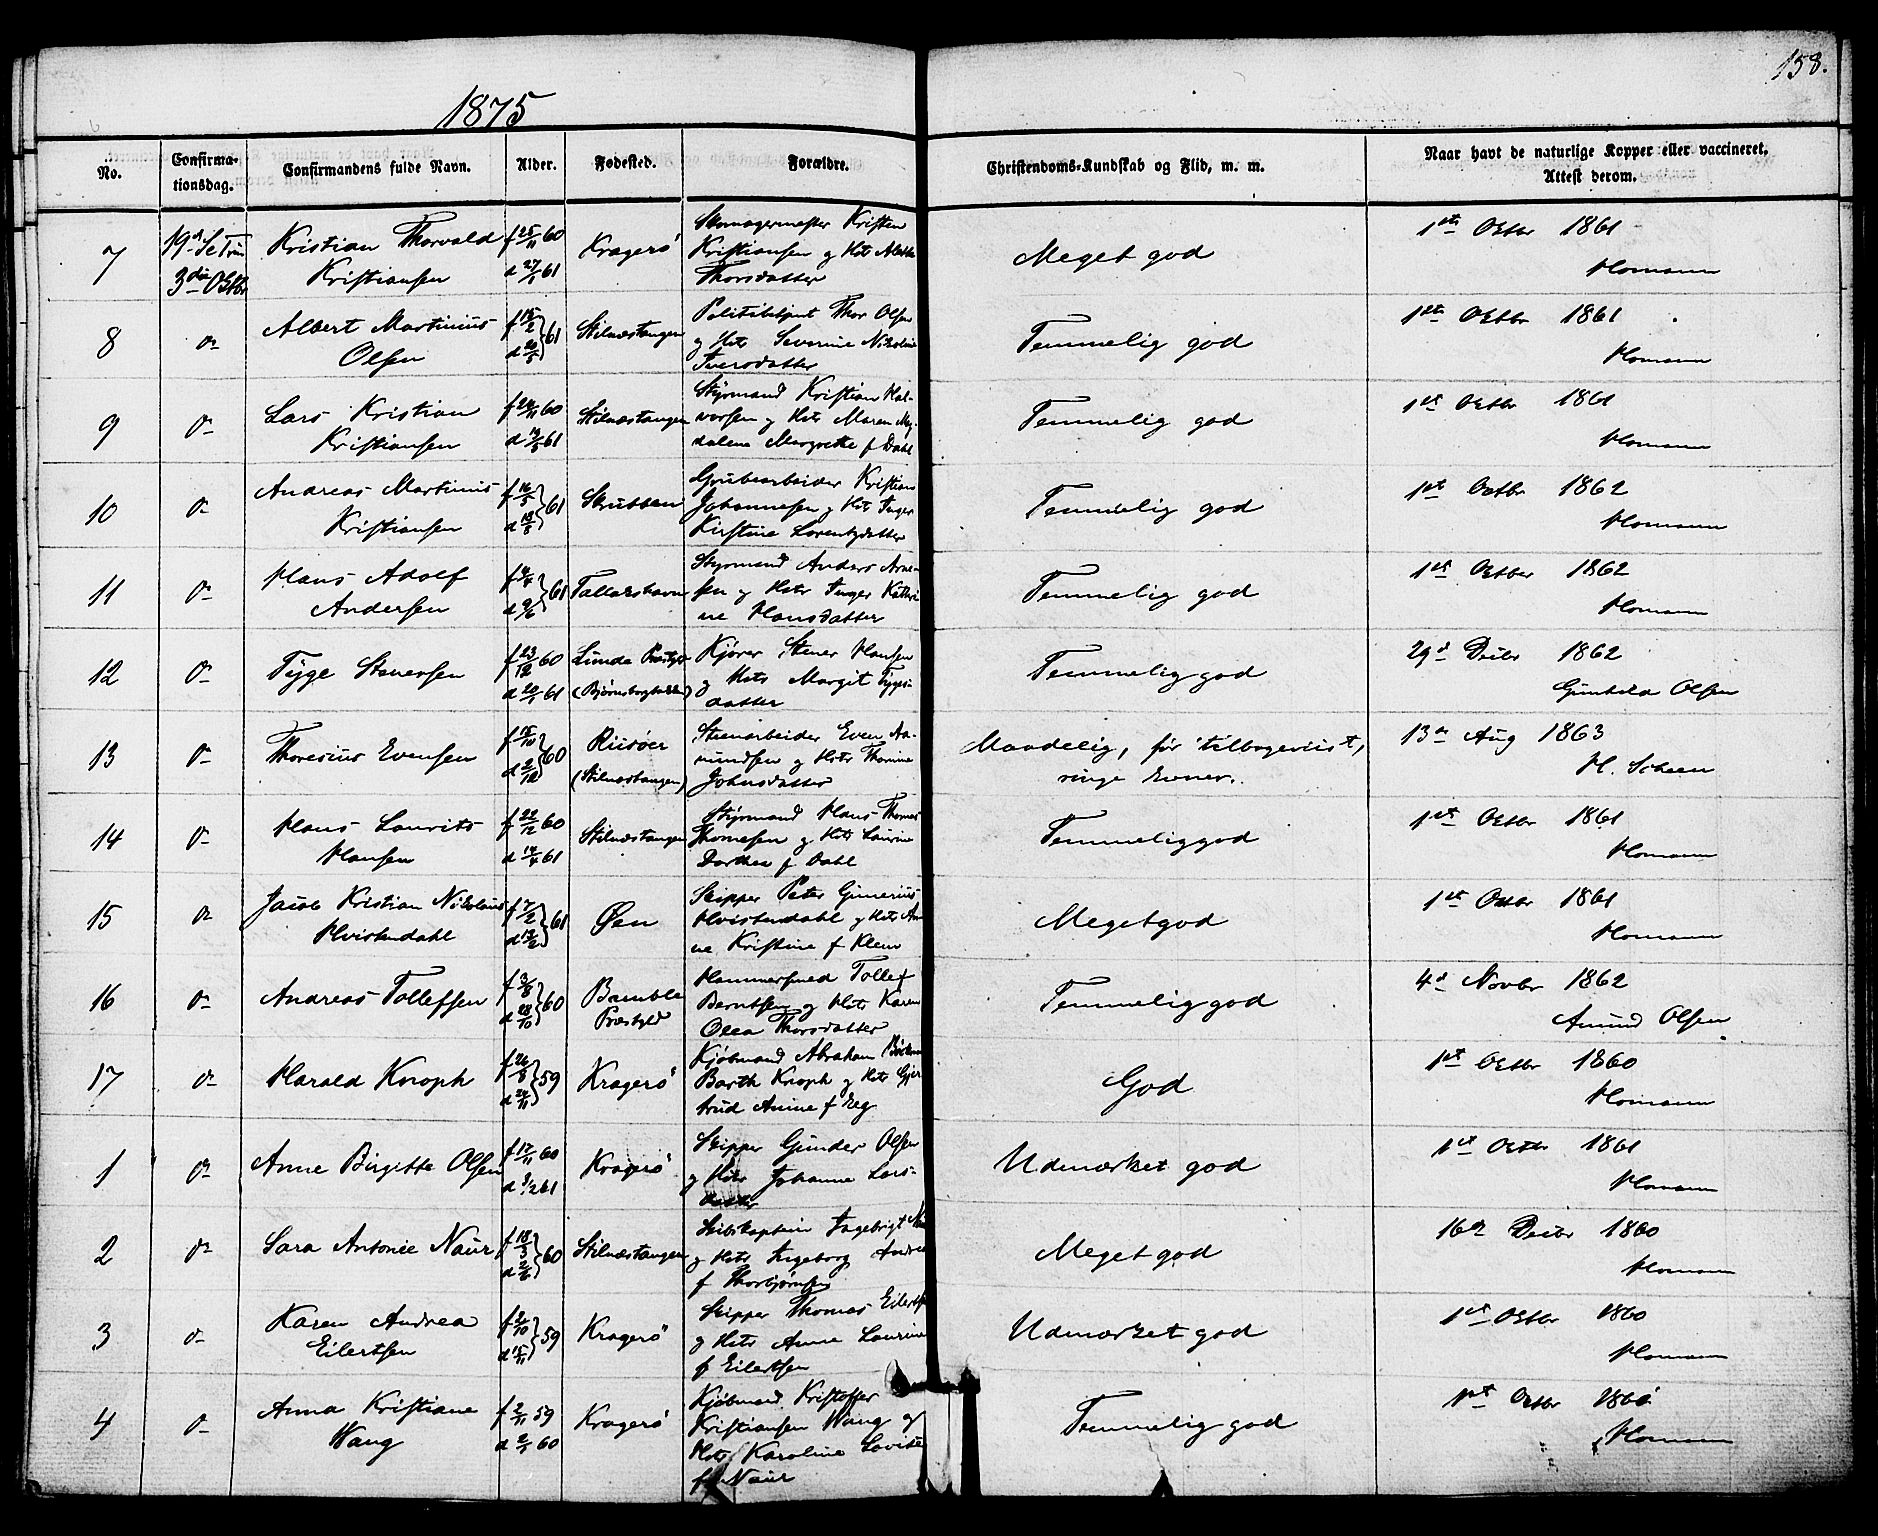 158.
1875
No.
Confirma-
tionsdag.
Confirmandens fulde Navn.
Alder.
Fødested.
Forældre.
Christendoms-Kundskab og Flid, m. m.
Naar havt de naturlige Kopper eller vaccineret.
Attest derom.
7
19d S e Trin
3die Octbr
Kristian Thorvald
Kristiansen
f 25/11 60
d 27/1 61
Kragerö
Kristen
Kristiansen og Hst
Thorsdatter
Meget god
1st Octbr 1861
Homann
8
do
Albert Martinius
Olsen
f 15/2 } 61
d 20/5
Stilnæstangen
Politibetjent Thor Olsen
og Hst Severine Nikoline
Iversdatter
Temmelig god
1st Octbr 1861
Homann
9
do
Lars Kristian
Kristiansen
f 24/11 60
d 19/5 61
Stilnæstangen
Styrmand Kristian Hal-
vorsen og Hst Maren Mag-
dalene Margrethe f Dahl
Temmelig god
1st Octbr 1861
Homann
10
do
Andreas Martinius
Kristiansen
f 16/3 } 61
d 18/5
Skrubben
Grubearbeider Kristian
Johannesen og Hst Inger
Kirstine Lorentzdatter
Temmelig god
1st Octbr 1862
Homann
11
do
Hans Adolf
Andersen
f 4/4 } 61
d 9/6
Tallakshavn
Styrmand Anders Arne-
sen og Hst Inger Kathri-
ne Hansdatter
Temmelig god
1st Octber 1862
Homann
12
do
Tyge Stenersen
f 23/12 60
d 20/1 61
Lunde Præstgj
Kjører Stener Hansen
og Hst Margit Tyges-
datter
Temmelig god
29d Decbr 1862
Gunhild Olsen
13
do
Thoresius Evensen
f 15/10 } 60
d 2/12
Riisöer
(Stilnæstangen)
Stenarbeider Even Aa-
mundsen og Hst Thomine
Johnsdatter
Maadelig, før tilbageviist,
ringe Evner.
13de Aug 1863
H. Scheen
14
do
Hans Laurits
Hansen
f 22/12 60
d 14/4 61
Stilnæstangen
Styrmand Hans Thomas
Thomesen og Hst Laurine
Dorthea f Dahl
Temmelig god
1st Octbr 1861
Homann
15
do
Jacob Kristian Nikolaus
Hvistendahl
f 7/2 } 61
d 13/2
Øen
Skipper Peter Gunerius
Hvistendahl og Hst An-
ne Kristine f Klem
Meget god
1st Octbr 1861
Homann
16
do
Andreas Tollefsen
f 3/8 } 60
d 28/10
Bamble
Præstgjld
Hammersmed Tollef
Berntsen og Hst Karen
Olea Thorsdatter
Temmelig god
4d Novbr 1862
Amund Olsen
17
do
Harald Knoph
f 26/8 } 59
d 24/11
Kragerö
Kjöbmand Abraham
Barth Knoph og Hst Gjer-
trud Amine f Eeg
God
1st Octbr 1860
Homann
1
do
Anne Birgitte Olsen
f 17/11 60
d 3/2 61
Kragerö
Skipper Gunder Olsen
og Hst Johanne Lars-
datter
Udmærket god
1st Octbr 1861
Homann
2
do
Sara Antonie Naur
f 18/3 } 60
d 2/6
Stilnæstangen
Skibskaptein Ingebrigt
og Hst Ingeborg Andrea
f Thorbjørnsen
Meget god
16de Decbr 1860
Homann
3
do
Karen Andrea
Eilertsen
f 2/10 } 59
d 15/11
Kragerö
Skipper Thomas Eilertsen
og Hst Anne Laurine
f Eilertsen
Udmærket god
1st Octbr 1860
Homann
4
do
Anna Kristiane
Wang
f 2/11 59
d 2/1 60
Kragerö
Kjöbmand Kristoffer
Kristiansen Wang og
Hst Karoline Lovise
f Naur
Temmelig god
1st Octbr 1860
Homann